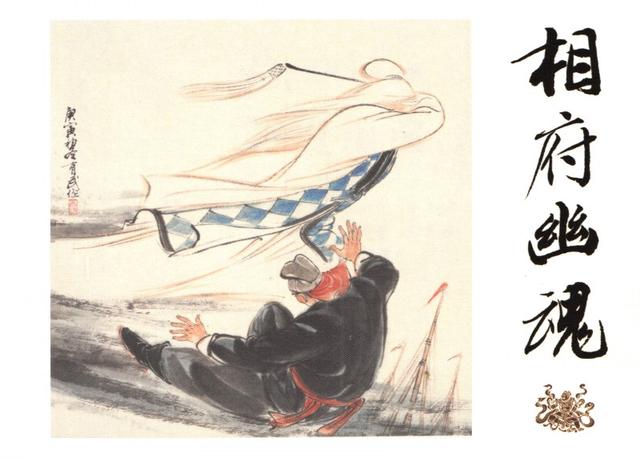 相府幽魂
庚寅